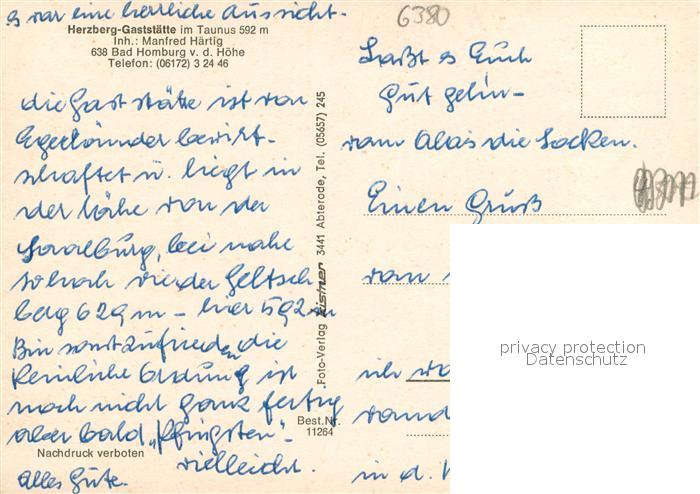 es war eine herrliche Aussicht.
Herzberg-Gaststätte im Taunus 592 m
Inh.: Manfred Härtig
638 Bad Homburg v. d. Höhe
Telefon: (06172) 3 24 46
die Gaststätte ist von
Egerländer bewirt-
schaftet u. liegt in
der Nähe von der
Saalburg, bei nahe
so hoch wie der
629 m - hier 592 m
Bin sonst zufrieden die
Ordnung ist
noch nicht ganz fertig
aber bald "Pfingsten"
vielleicht.
Alles Gute.
Nachdruck verboten
Foto-Verlag 3441 Abterode, Tel. (05657) 245
Best.Nr.
11264
6380
Laßt es Euch
Gut gelin-
die Socken.
Einen Gruß
vom
ich
in d.
privacy protection
Datenschutz